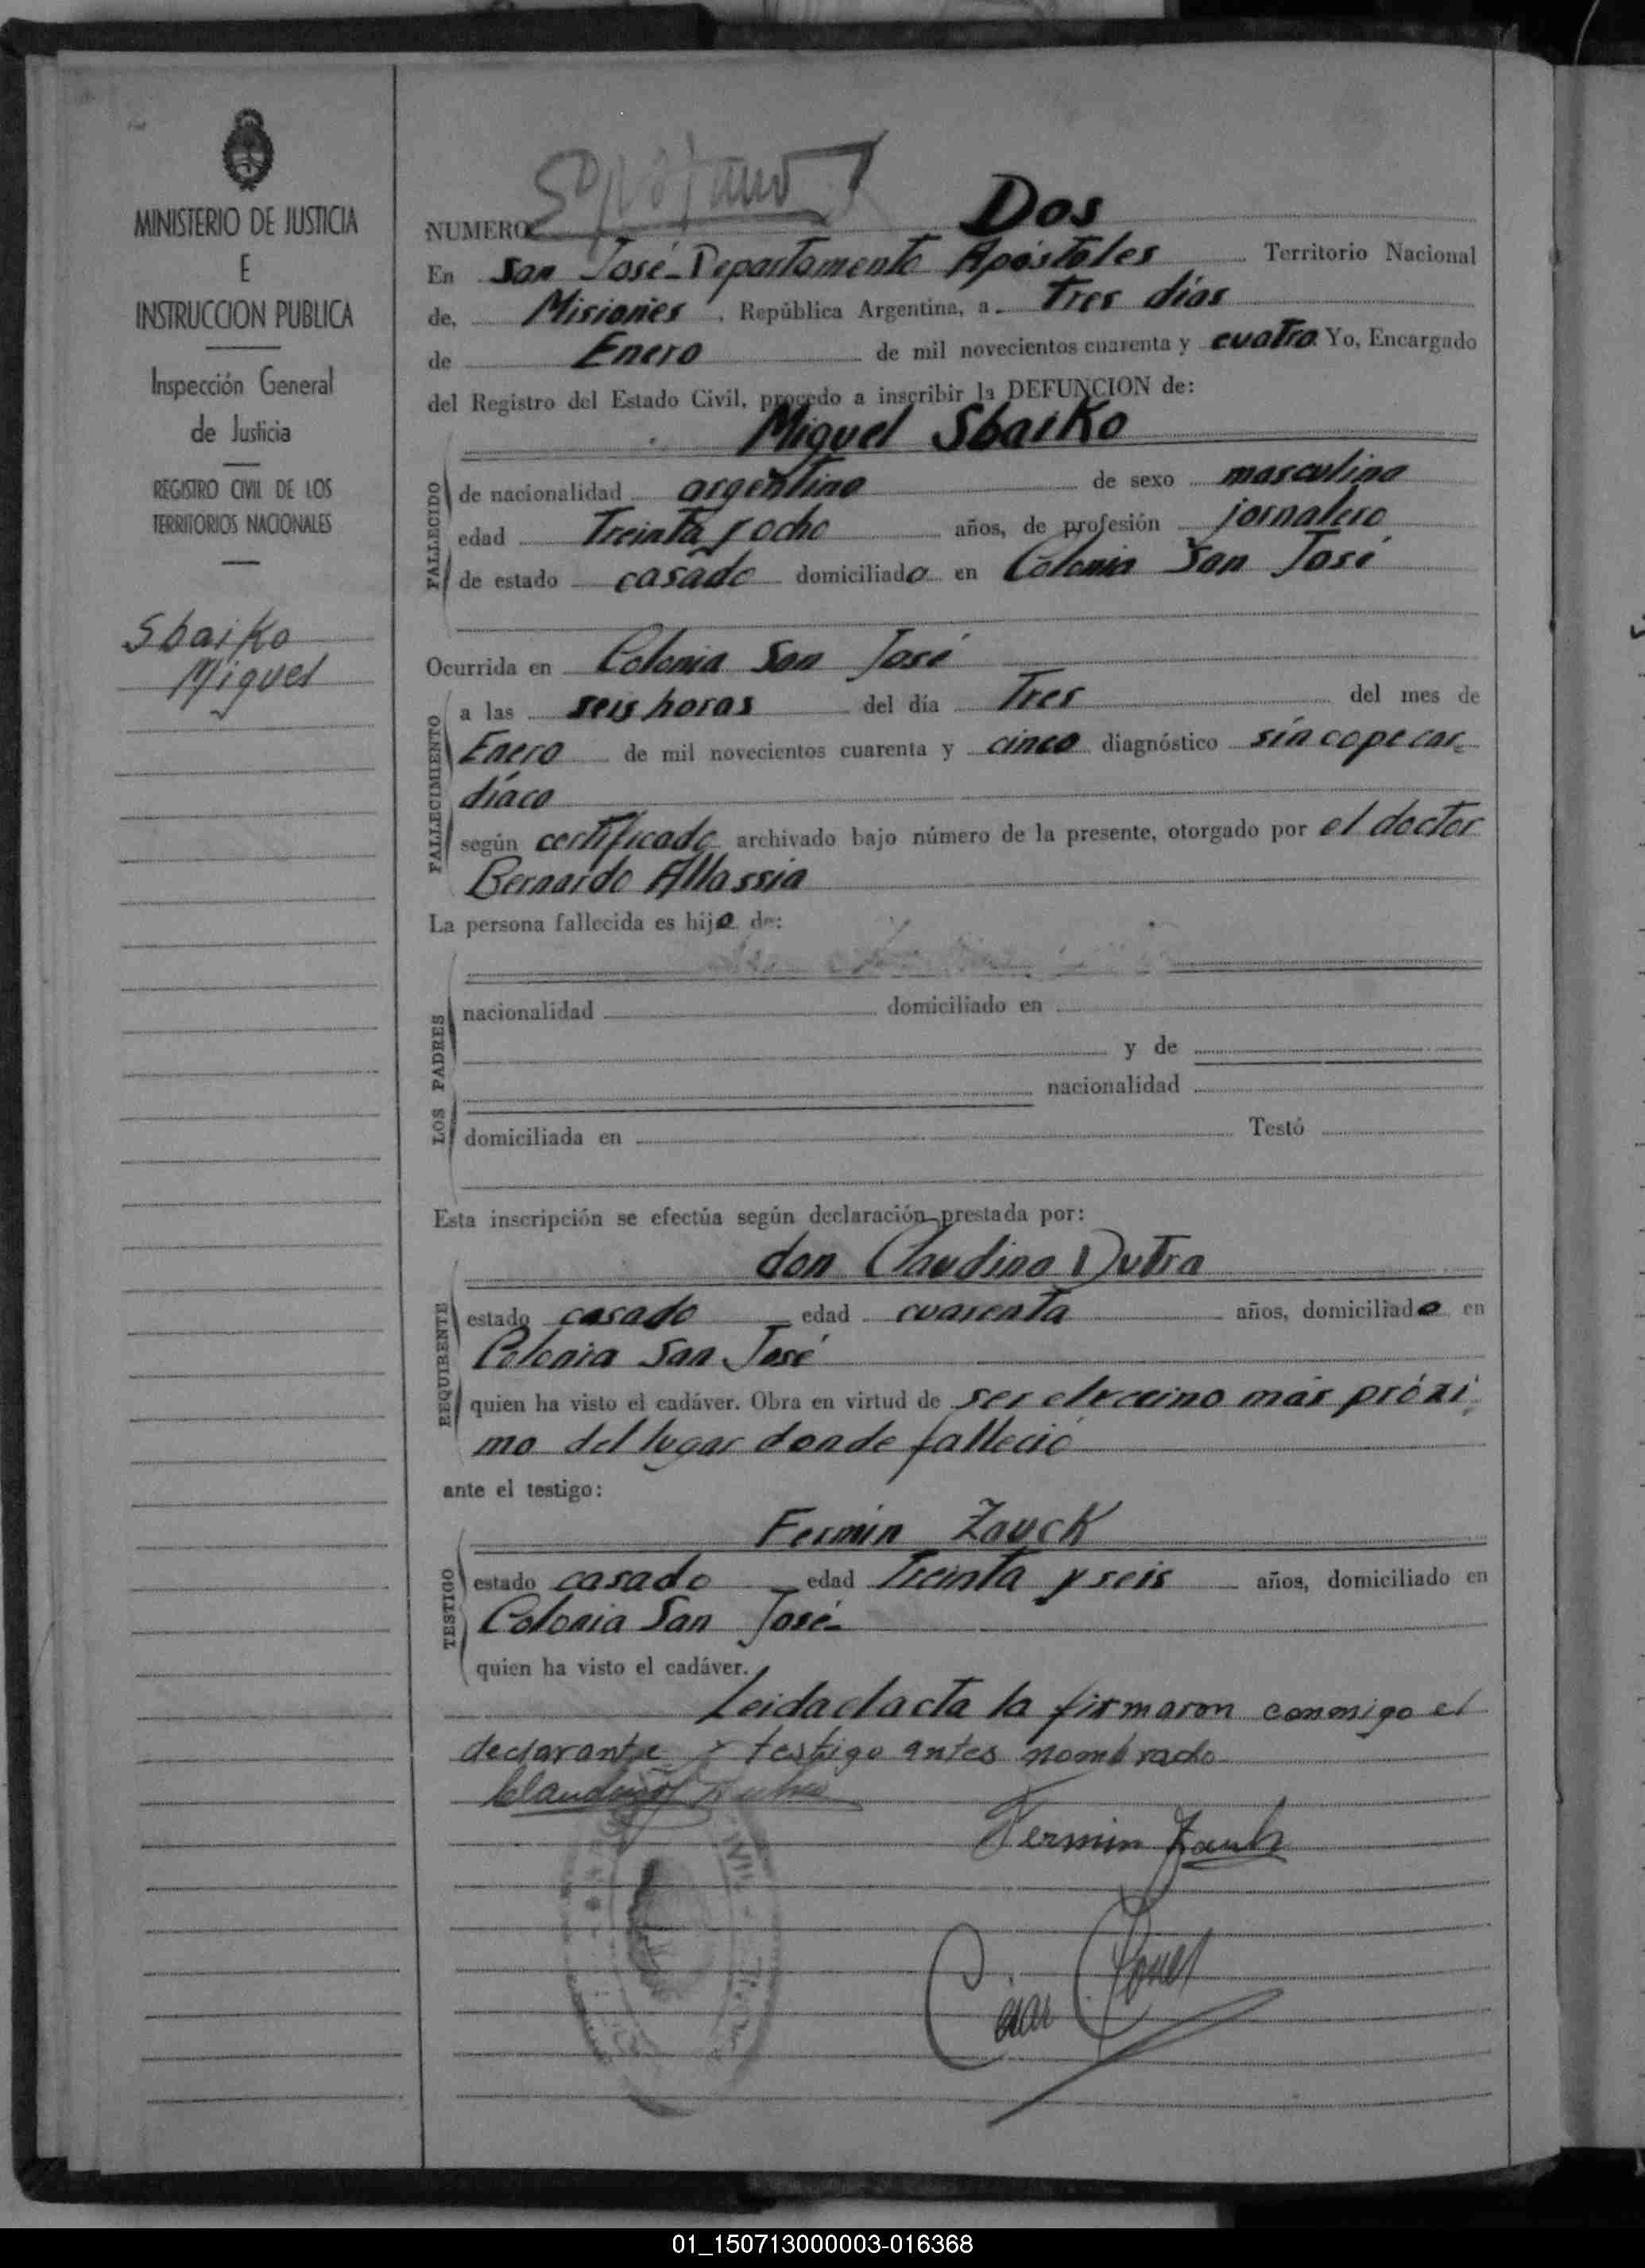 MINISTERIO DE JUSTICIA
E
INSTRUCCION PUBLICA
Inspección General
de Justicia
REGISTRO CIVIL DE LOS
TERRITORIOS NACIONALES
Sbaiko
Miguel
NUMERO Dos
En San José-Departamento Apóstoles Territorio Nacional
de, Misiones, República Argentina, a Tres días
de Enero de mil novecientos cuarenta y cuatro Yo, Encargado
del Registro del Estado Civil, procedo a inscribir la DEFUNCION de:
Miguel Sbaiko
FALLECIDO
de nacionalidad argentino de sexo masculino
edad Treinta y ocho años, de profesión jornalero
de estado casado domiciliado en Colonia San José
Ocurrida en Colonia San José
FALLECIMIENTO
a las seis horas del día Tres del mes de
Enero de mil novecientos cuarenta y cinco diagnóstico síncope car-
díaco
según certificado archivado bajo número de la presente, otorgado por el doctor
Bernardo Allassia
La persona fallecida es hijo de:
LOS PADRES
nacionalidad domiciliado en
y de
nacionalidad
domiciliada en Testó
Esta inscripción se efectúa según declaración prestada por:
don Claudino Dutra
REQUIRENTE
estado casado edad cuarenta años, domiciliado en
Colonia San José
quien ha visto el cadáver. Obra en virtud de ser el vecino más próxi-
mo del lugar donde falleció
ante el testigo:
Fermín Zauck
TESTIGO
estado casado edad Treinta y seis años, domiciliado en
Colonia San José-
quien ha visto el cadáver.
Leida el acta la firmaron conmigo el
declarante y testigo antes nombrado
Fermin Zauk
01_150713000003-016368